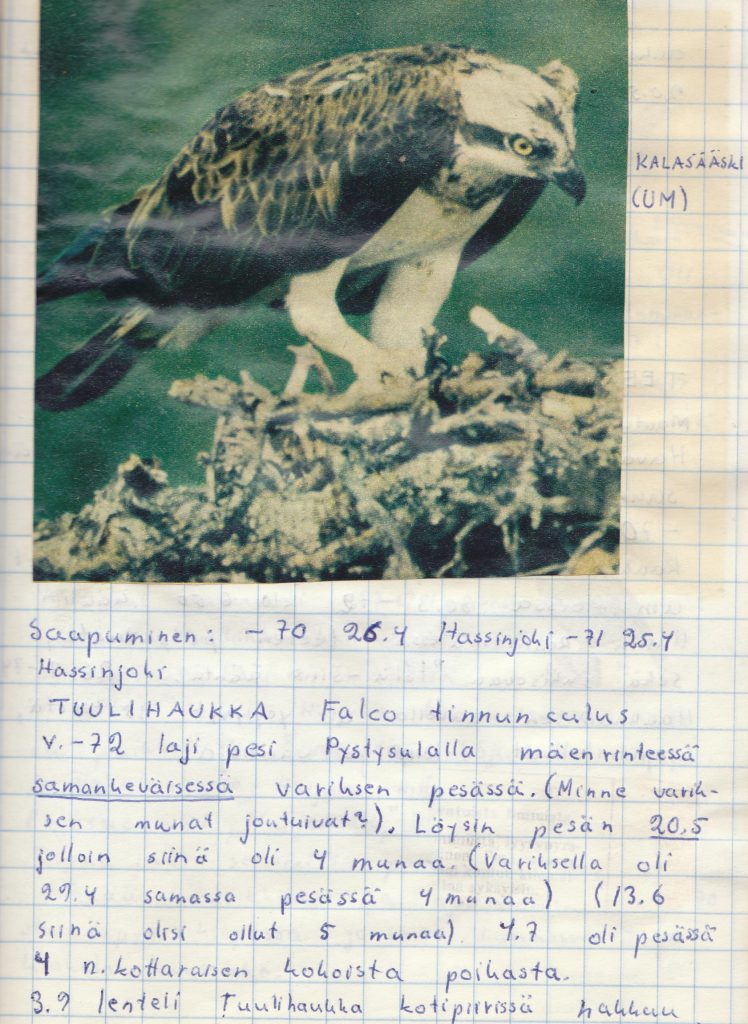 KALASÄÄSKI
(UM)
Saapuminen: -70 26.4 Hassinjoki -71 25.4
Hassinjoki
TUULIHAUKKA Falco tinnunculus
v. -72 laji pesi Pystysulalla mäenrinteessä
samankeväisessä variksen pesässä. (Minne varik-
sen munat joutuivat?). Löysin pesän 20.5
jolloin siinä oli 4 munaa. (Variksella oli
29.4 samassa pesässä 4 munaa) (13.6
siinä olisi ollut 5 munaa). 4.7 oli pesässä
4 n. kottaraisen kokoista poikasta.
3.9 lenteli Tuulihaukka kotipiirissä